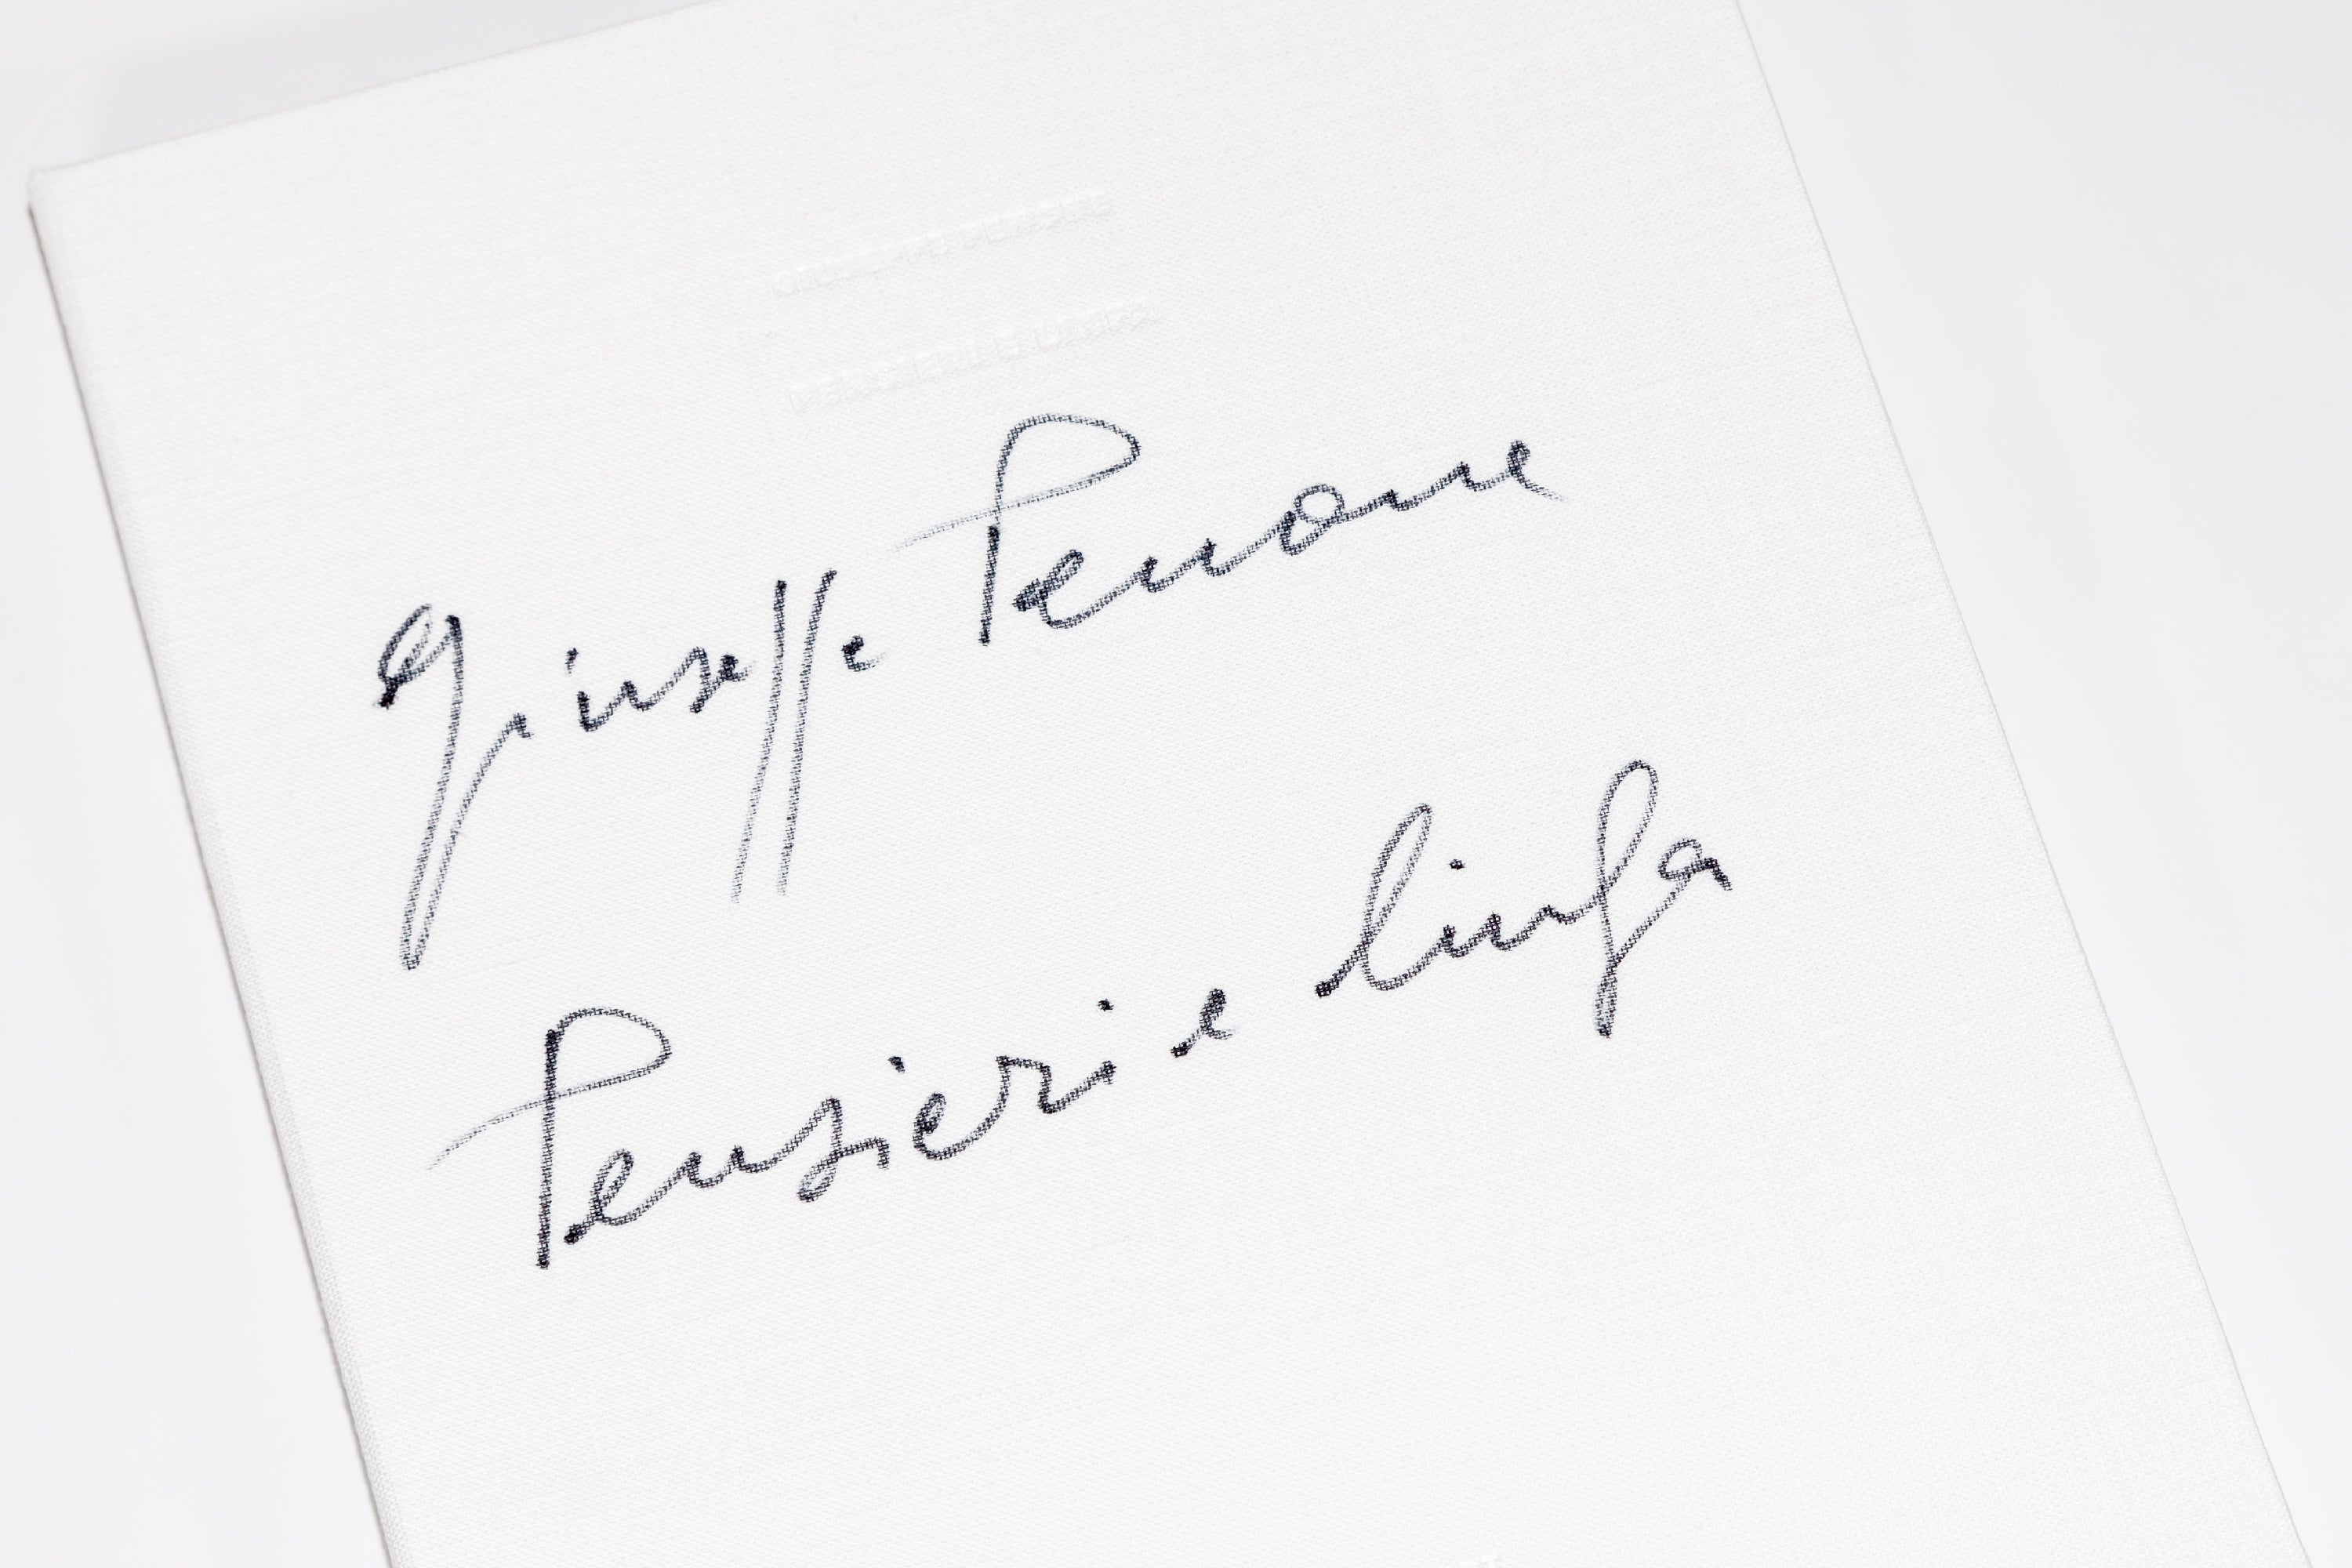 GIUSEPPE PENONE
PENSIERI E LINFA
Giuseppe Penone
Pensieri e linfa